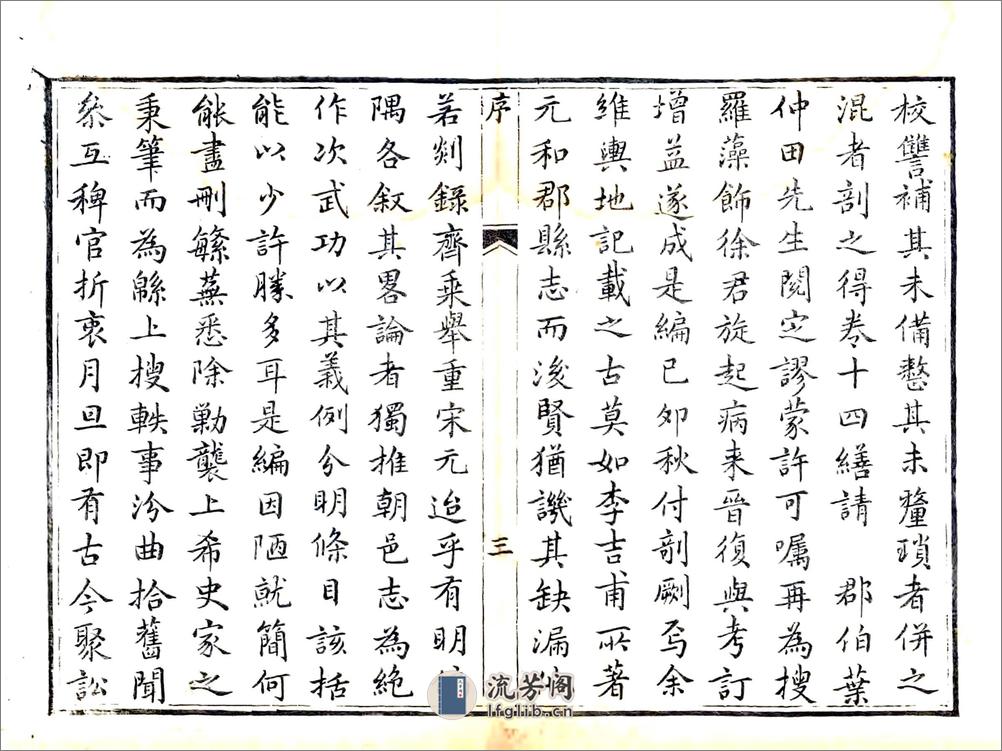 校讐補其未備整其未釐瑣者併之
混者剖之得卷十四繕請 郡伯葉
仲田先生閱定謬蒙許可囑再為搜
羅藻飾徐君旋起病来晉復與考訂
增益遂成是編已夘秋付剞劂焉余
維輿地記載之古莫如李吉甫所著
元和郡縣志而後賢猶譏其缺漏
序
三
若剡錄齊乘舉重宋元迨乎有明
隅各叙其畧論者獨推朝邑志為絶
作次武功以其義例分明條目該括
能以少許勝多耳是編因陋就簡何
能盡刪繁蕪悉除勦襲上希史家之
秉筆而為緜上搜軼事汾曲拾舊聞
叅互稗官折衷月旦即有古今聚訟
流芳阁
lfglib.cn